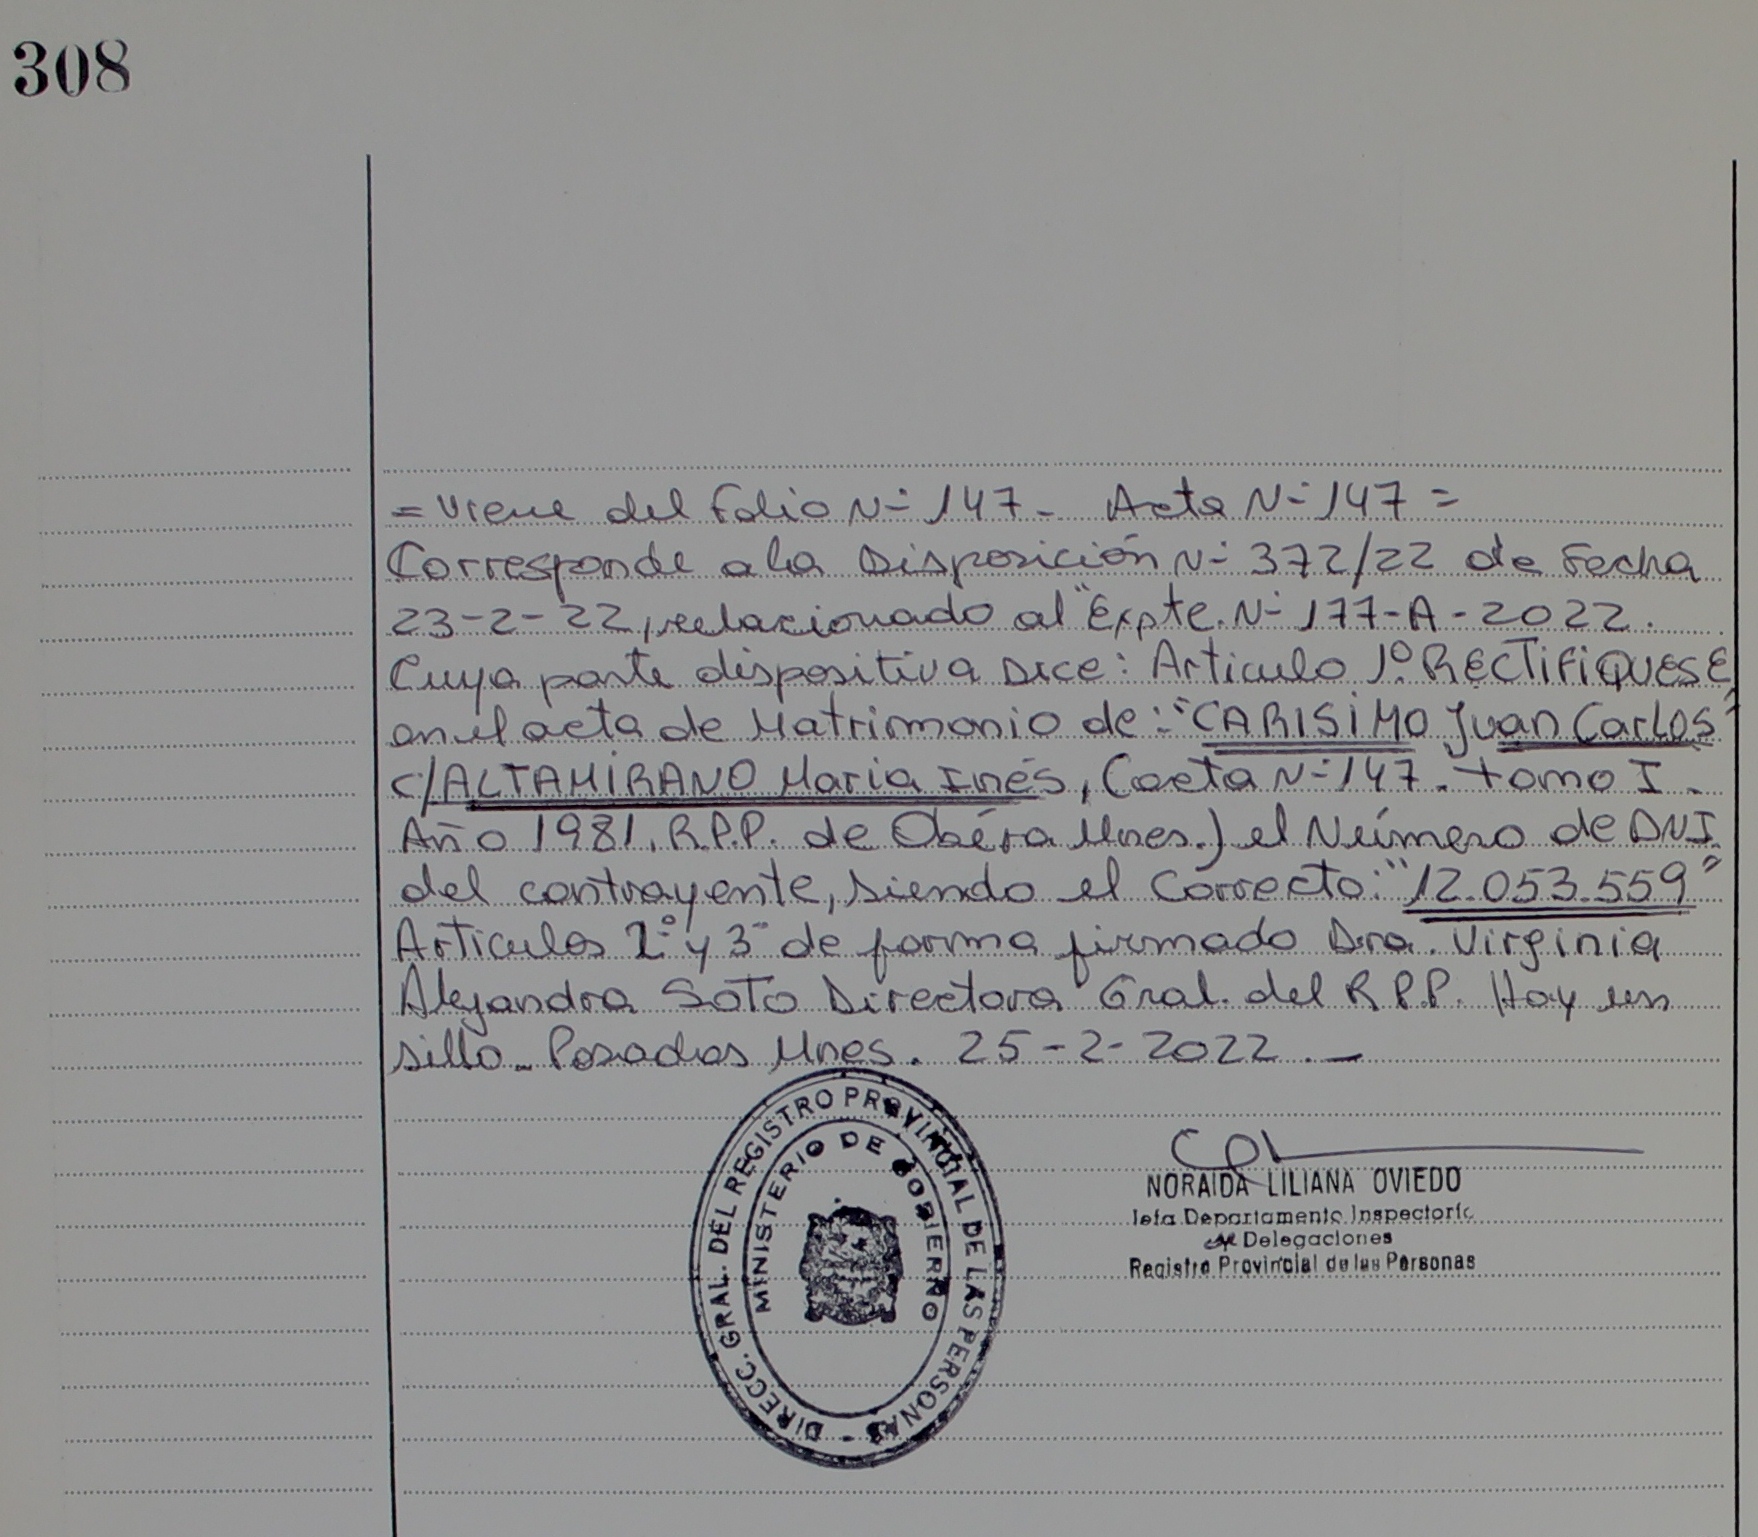 308
= Viene del Folio Nº 147 - Acta Nº 147 =
Corresponde a la Disposición Nº 372/22 de Fecha
23-2-22, relacionado al Expte. Nº 177-A-2022.
Cuya parte dispositiva Dice: Articulo 1º. RECTIFIQUESE,
en el acta de Matrimonio de: "CARISIMO Juan Carlos"
c/ALTAMIRANO Maria Inés, (acta Nº 147. tomo I.
Año 1981. R.P.P. de Obéra Mnes.) el Número de DNI.
del contrayente, siendo el Correcto: "12.053.559"
Articulos 2º y 3º de forma firmado Dra. Virginia
Alejandra SOTO Directora Gral. del R.P.P. Hay un
sello. Posadas Mnes. 25-2-2022. —
DIRECC. GRAL. DEL REGISTRO PROVINCIAL DE LAS PERSONAS -
MINISTERIO DE GOBIERNO
NORAIDA LILIANA OVIEDO
Jefa Departamento Inspectoría
de Delegaciones
Registro Provincial de las Personas